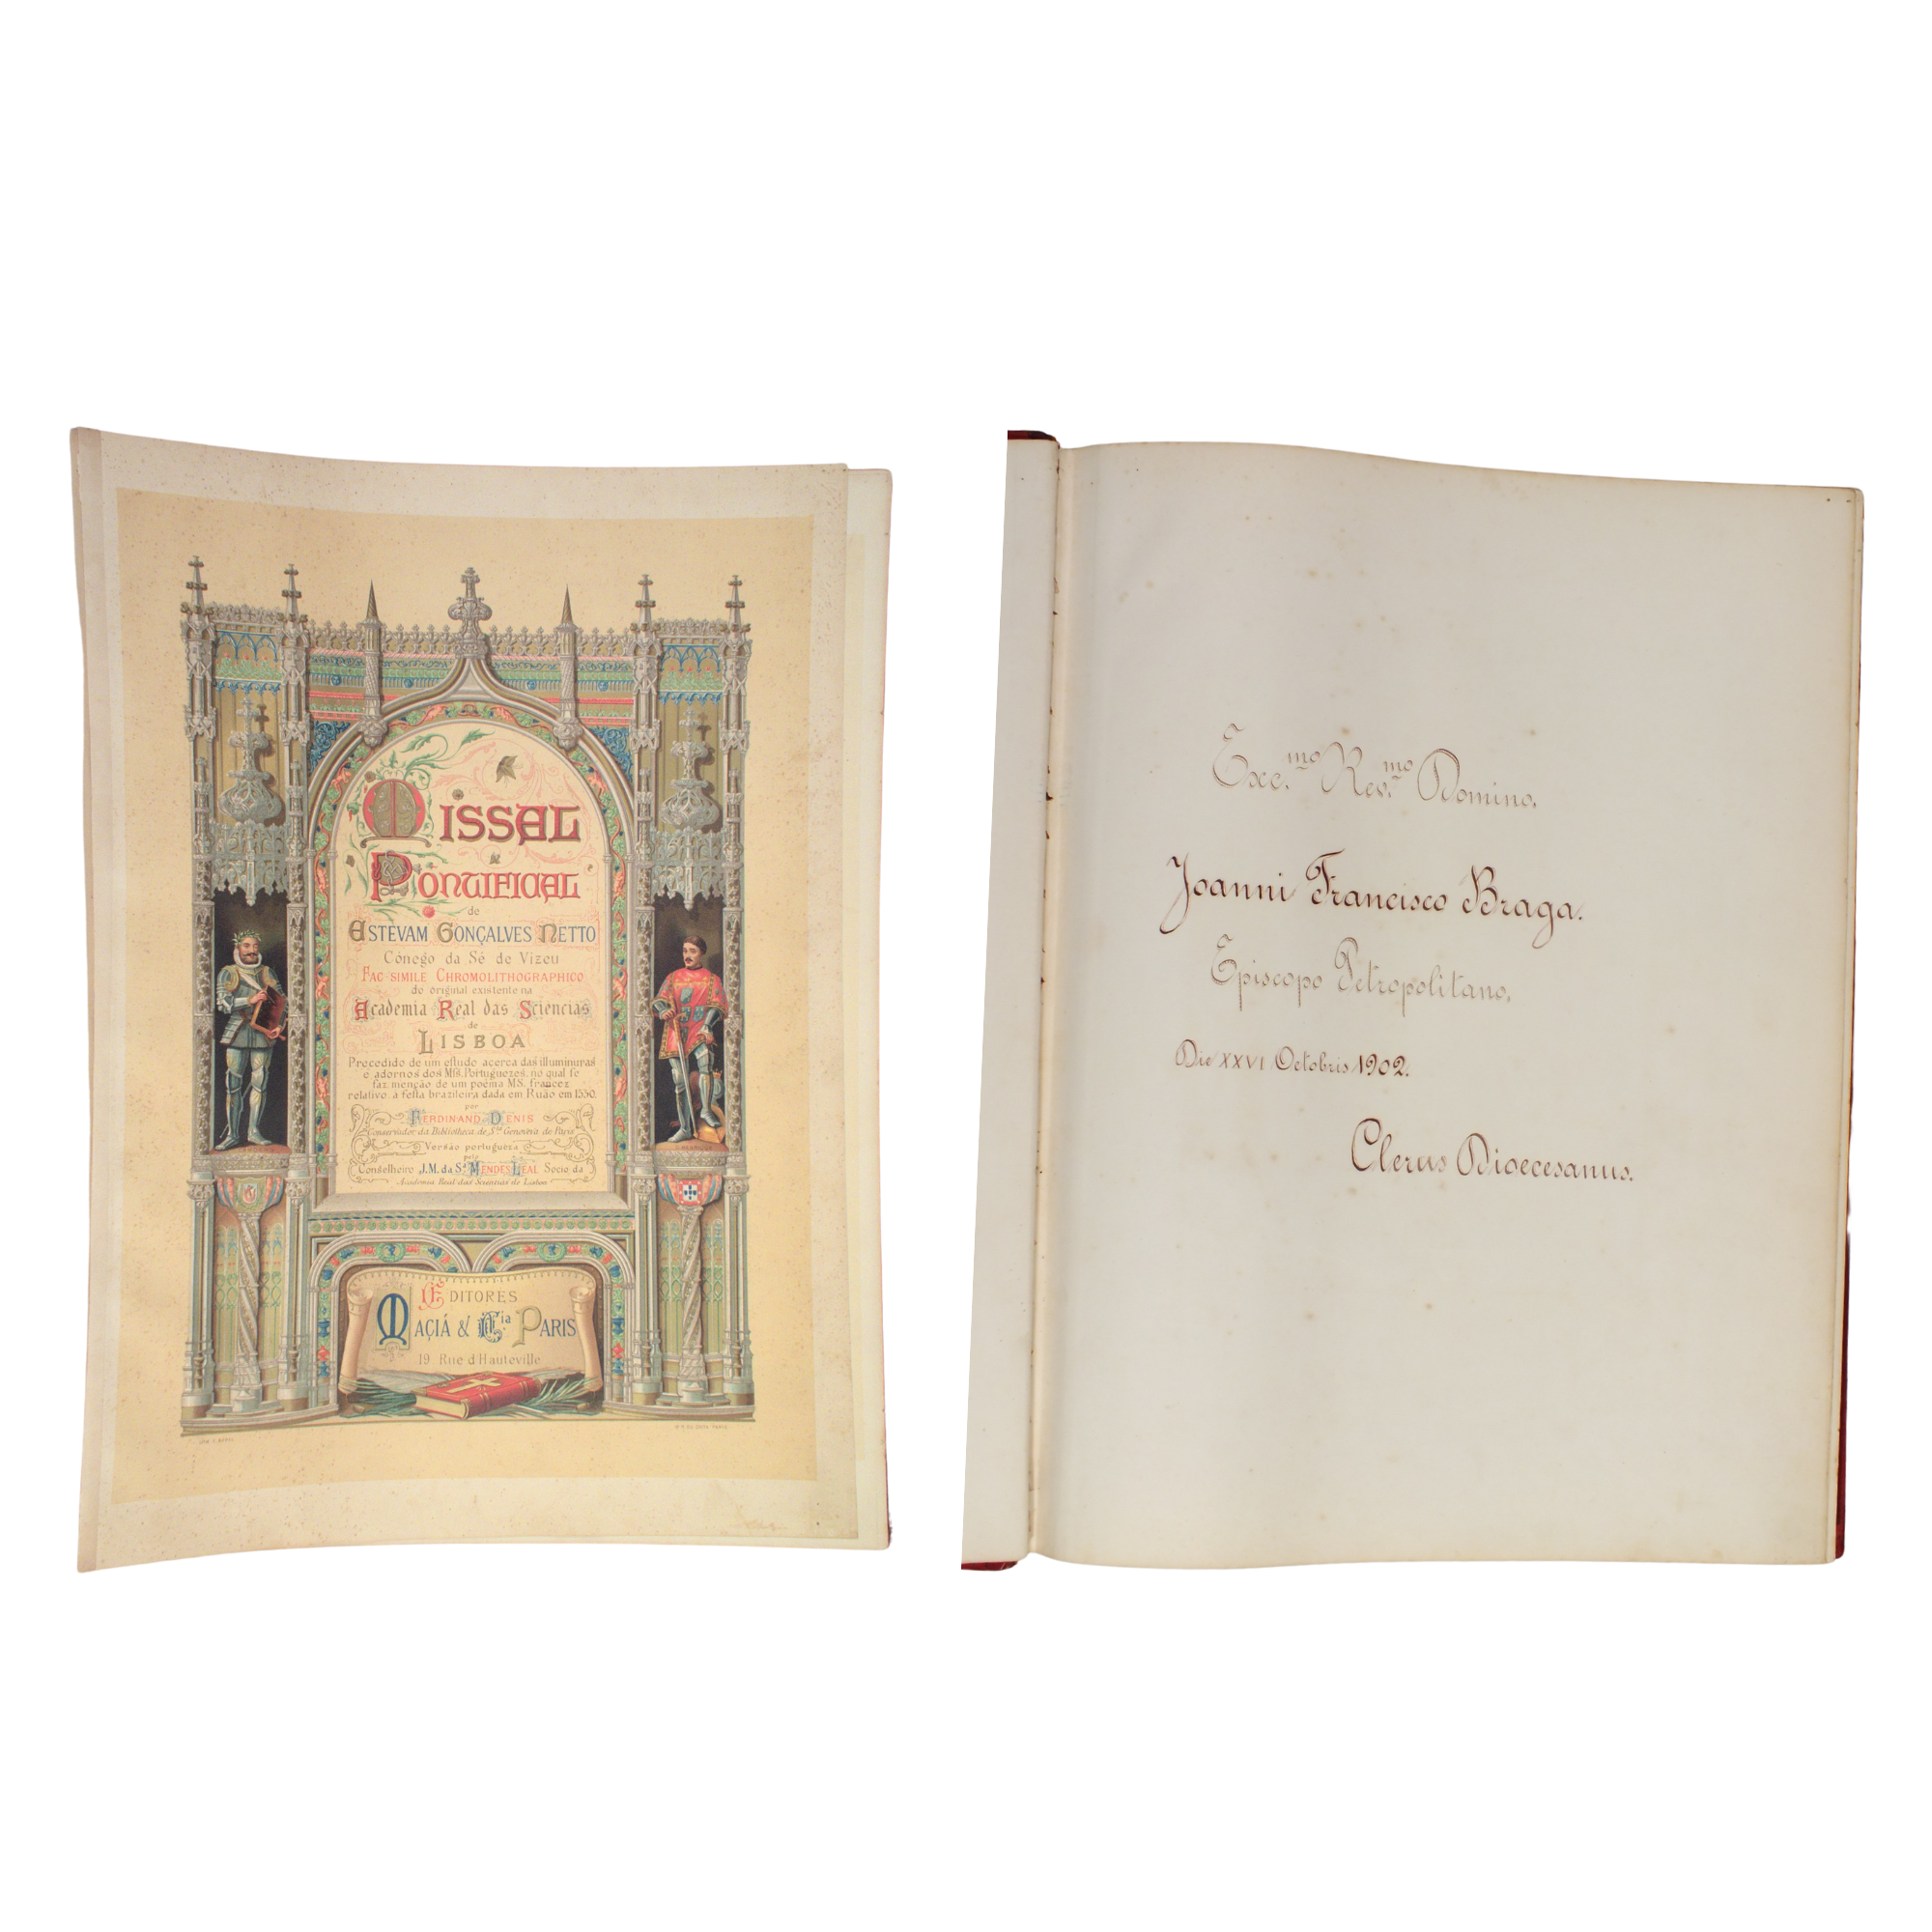 MISSAL
PONTIFICAL
de
ESTEVAM GONÇALVES NETTO
Cónego da Sé de Vizeu
FAC SIMILE CHROMOLITHOGRAPHICO
do original existente na
Academia Real das Sciencias
de
LISBOA
Precedido de um estudo acerca das illuminuras
e adornos dos Mſs. Portuguezes, no qual ſe
faz menção de um poëma MS. francez
relativo á feſta brazileira dada em Ruão em 1550.
por
FERDINAND DENIS
Conservador da Bibliotheca de Sta Genovera de Paris
Versão portugueza
pelo
Conſelheiro J.M. da Sa MENDES LEAL Socio da
Academia Real das Sciencias de Lisboa
EDITORES
MAÇIÁ & Cia PARIS
19 Rue d'Hauteville
Exc.mo Rev.mo Domino,
Joanni Francisco Braga.
Episcopo Petropolitano,
Die XXVI Octobris 1902.
Clerus Dioecesanus.